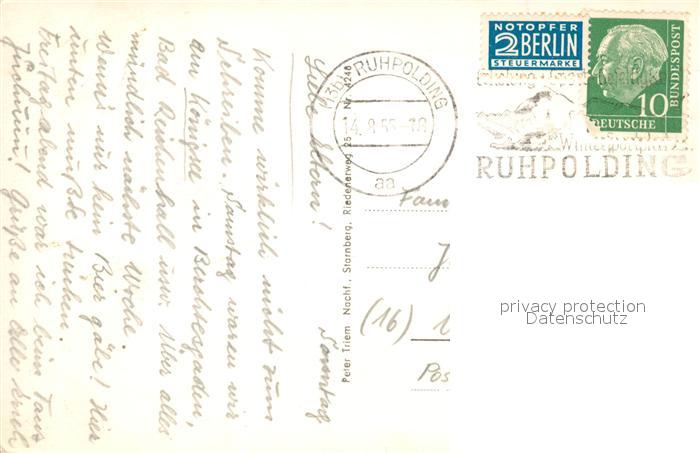 NOTOPFER
2 BERLIN
STEUERMARKE
DEUTSCHE
BUNDESPOST
10
RUHPOLDING
14.8.55-18
aa
Wintersportplatz
RUHPOLDING
Sonntag
Liebe Eltern!
Komme wirklich nicht zum
Schreiben. Samstag waren wir
am Königsee in Berchtesgaden,
Bad Reichenhall usw. Über alles
mündlich nächste Woche.
Wenn's nur kein Bier gäbe! Hier
unten mußte trinken.
Freitag abend war ich beim Tanz
Grüße an Alle
Peter Triem Nachf., Starnberg, Riedenerweg 25 Nr. 4246
Fam
(16)
Pos
privacy protection
Datenschutz